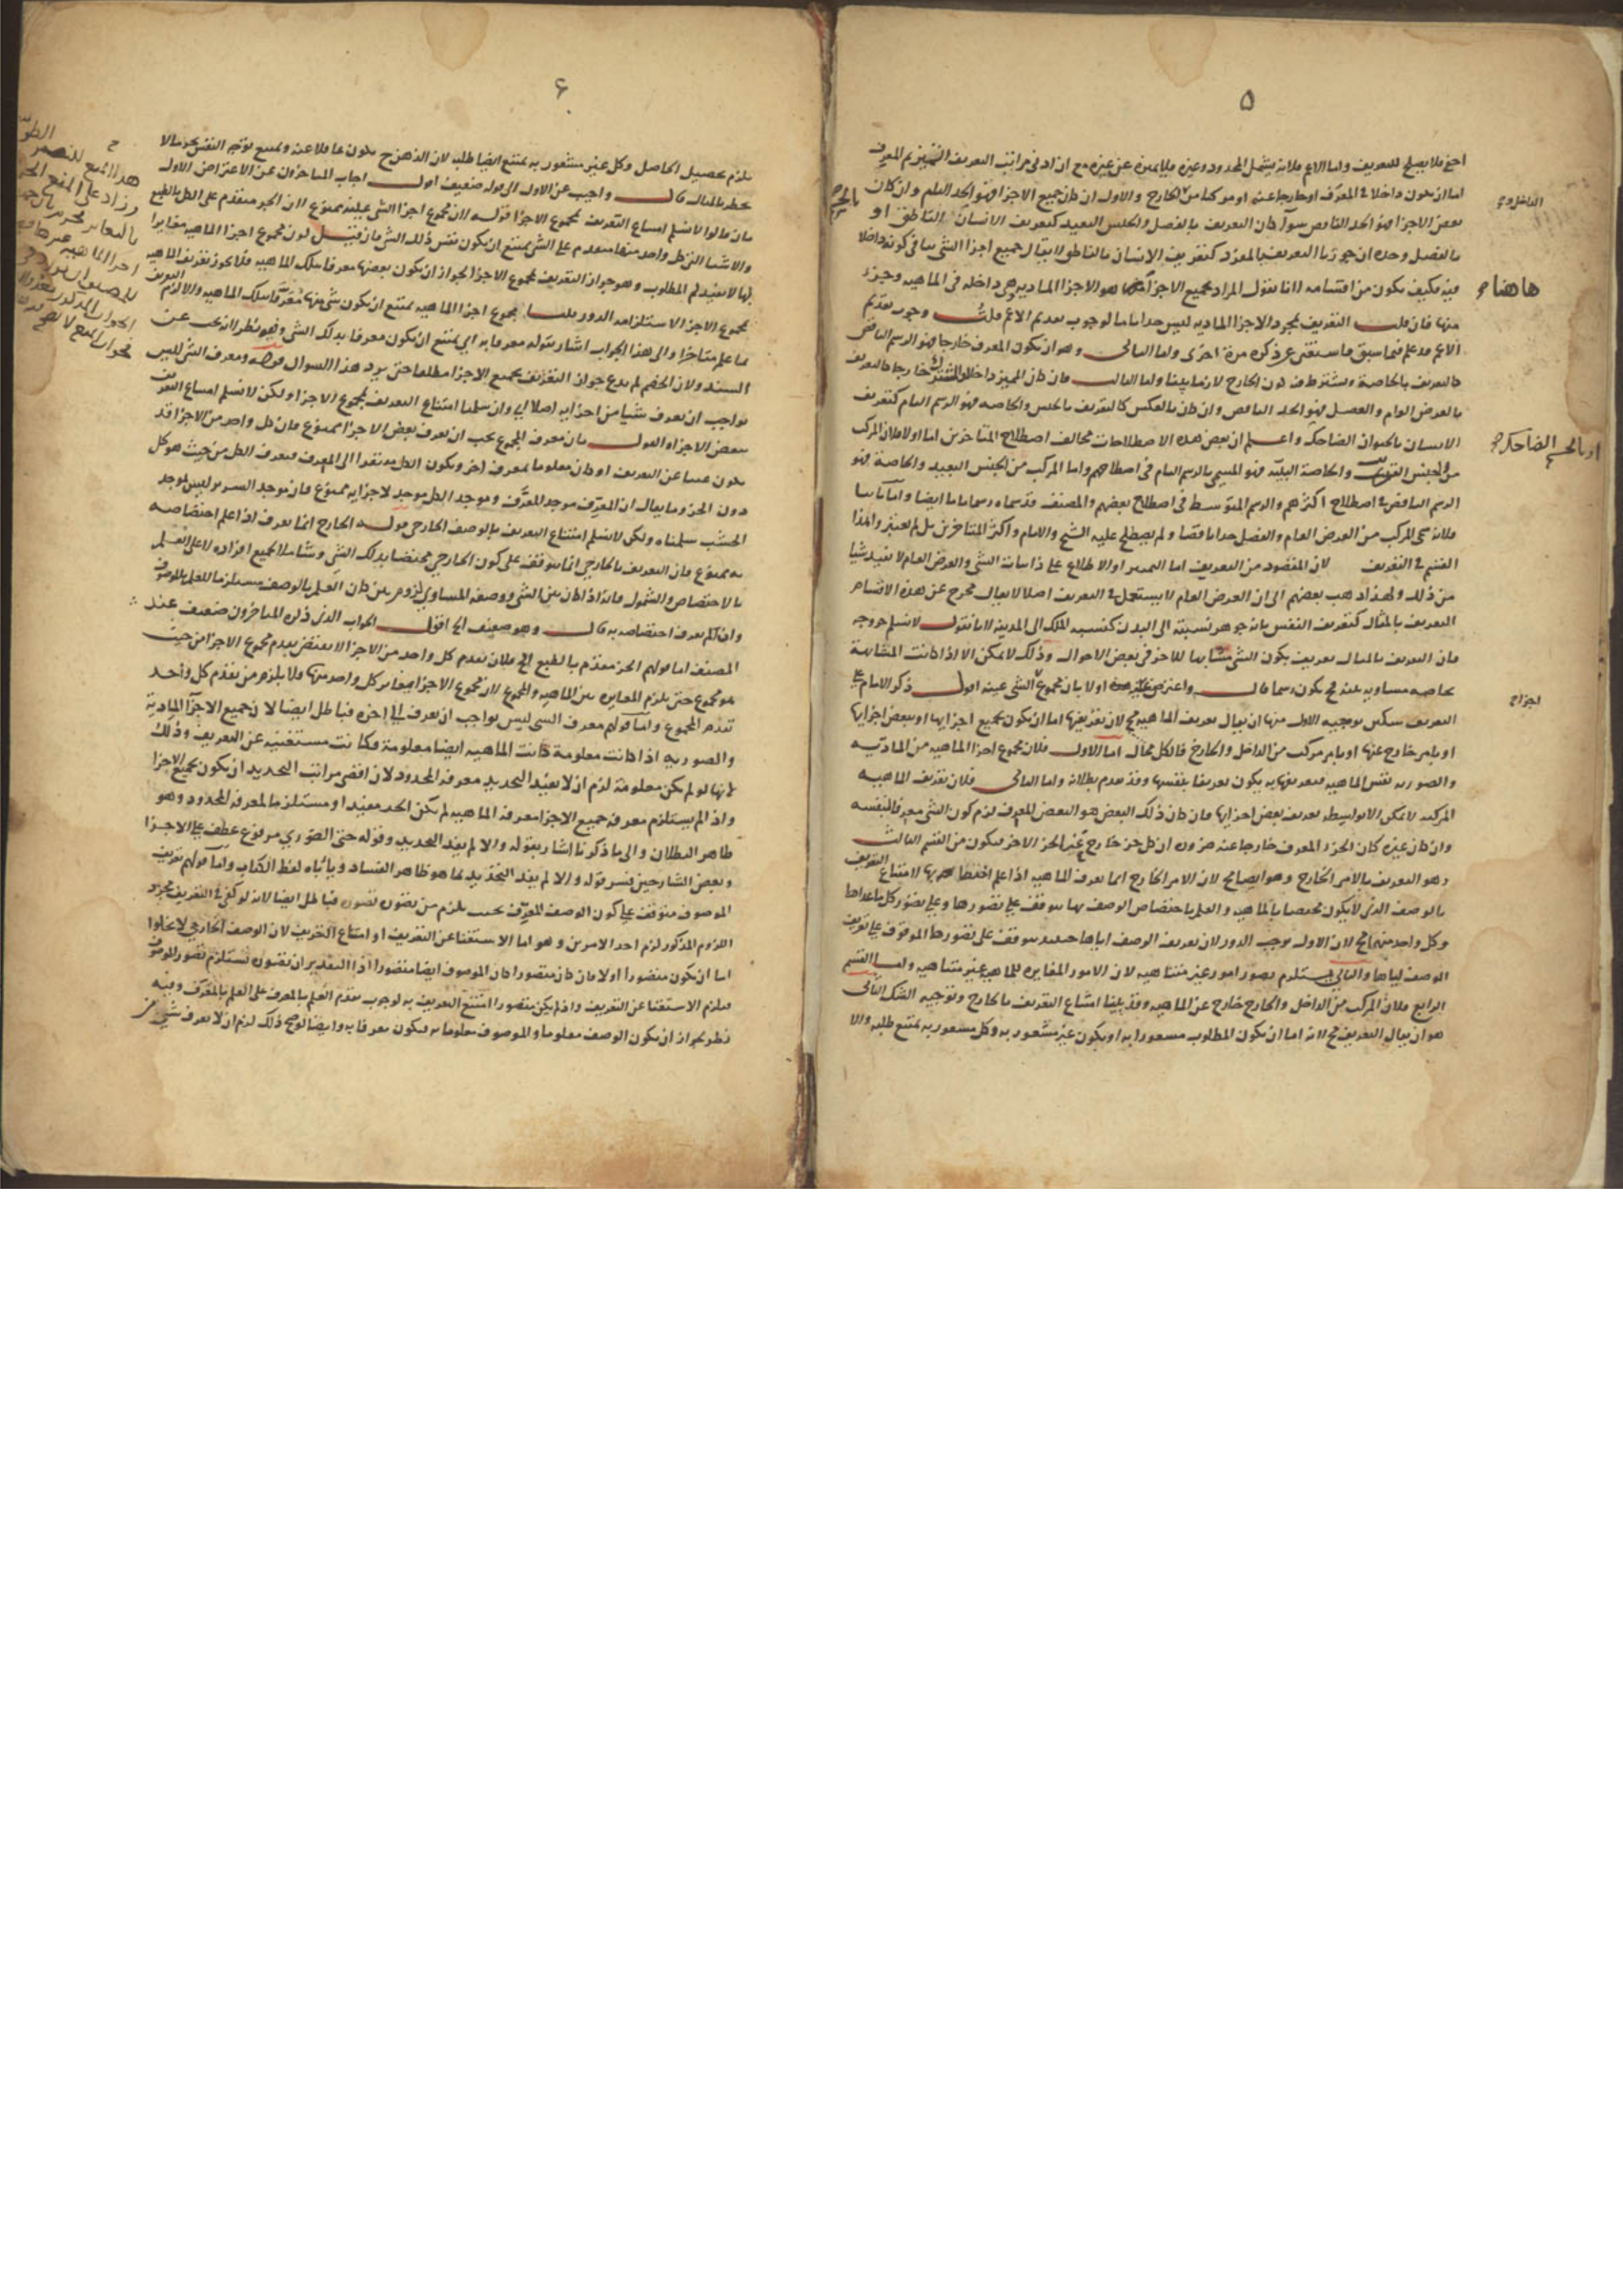 ٥
اخفى فلا يصلح للتعريف واما الاعم فلانه يشمل المحدود وغيره فلا يميزه عن غيره مع ان ادنى مراتب التعريف التمييز ثم المعرف
اما ان يكون داخلا في المعرف او خارجا عنه او مركبا من الخارج والاول ان كان جميع الاجزا فهو الحد التام وان كان
بعض الاجزا فهو الحد الناقص سوا كان التعريف بالفصل والجنس البعيد كتعريف الانسان الناطق او
بالفصل وحده ان جوزنا التعريف بالمفرد كتعريف الانسان بالناطق لا يقال جميع اجزا الشي في كونه داخلا
فيه فكيف يكون من اقسامه لانا نقول المراد بجميع الاجزا هو الاجزا المادية هي داخله في الماهيه وجزء
منها فان قلت التعريف بمجرد الاجزا الماديه ليس حدا تاما لوجوب تقديم الاعم قلت وجوب تقديم
الاعم قد علم فيما سبق فاستغنى عن ذكره مرة اخرى واما الثاني وهو ان يكون المعرف خارجا فهو الرسم الناقص
كالتعريف بالخاصة ويشترط فيه كون الخارج لازما بينا واما الثالث فان كان المميز داخلا والمشترك خارجا كالتعريف
بالعرض العام والفصل فهو الحد الناقص وان كان بالعكس كالتعريف بالجنس والخاصه فهو الرسم التام كتعريف
الانسان بالحيوان الضاحك واعلم ان بعض هذه الاصطلاحات مخالف اصطلاح المتاخرين اما اولا فلان المركب
من الجنس القريب والخاصة البينة فهو المسمى بالرسم التام في اصطلاحهم واما المركب من الجنس البعيد والخاصة فهو
الرسم الناقص في اصطلاح اكثرهم والرسم المتوسط في اصطلاح بعضهم والمصنف قد سماه رسما تاما ايضا واما ثانيا
فلانه سمى المركب من العرض العام والفصل حدا ناقصا ولم يصطلح عليه الشيخ والامام واكثر المتاخرين بل لم يعتبر وا هذا
القسم في التعريف لان المقصود من التعريف اما التمييز او الاطلاع على ذاتيات الشي والعرض العام لا يفيد شيا
من ذلك ولهذا ذهب بعضهم الى ان العرض العام لا يستعمل في التعريف اصلا لا يقال يخرج عن هذه الاقسام
التعريف بالمثال كتعريف النفس بانه جوهر نسبته الى البدن كنسبه الملك الى المدينه لانا نقول لا نسلم خروجه
فان التعريف بالمثال تعريف بكون الشي مشابها للاخر في بعض الاحوال وذلك لا يمكن الا اذا كانت المشابهة
خاصه مساويه بينه فح يكون رسما قال واعترض اولا بان مجموع الشي عينه اقول ذكر الامام على
التعريف شكين توجيه الاول منها ان يقال تعريف الماهيه مح لان تعريفها اما ان يكون بجميع اجزايها او ببعض اجزايها
او بامر خارج عنها او بامر مركب من الداخل والخارج فالكل محال اما الاول فلان مجموع اجزا الماهيه من الماديه
والصوريه نفس الماهيه فتعريفها به يكون تعريفا بنفسها وقد تقدم بطلانه واما الثاني فلان تعريف الماهيه
المركبه لا يمكن الا بواسطه تعريف بعض اجزايها فان كان ذلك البعض هو البعض المعرف لزم كون الشي معرفا لنفسه
وان كان غيره كان الجزء المعرف خارجا عنه ضرورة ان كل جز خارج عن الجز الاخر فيكون من القسم الثالث
وهو التعريف بالامر الخارج وهو ايضا مح لان الامر الخارج انما يعرف الماهيه اذا علم اختصاصه بها لامتناع التعريف
بالوصف الذي لا يكون مختصا بالماهيه والعلم باختصاص الوصف بها يتوقف على تصورها وعلى تصور كل ما عداها
وكل واحد منهما مح لان الاول يوجب الدور لان تعريف الوصف اياها حينيذ يتوقف على تصورها الموقوف على تعريف
الوصف اياها والثاني يستلزم تصور امور غير متناهيه لان الامور المغايره للماهيه غير متناهيه واما القسم
الرابع فلان المركب من الداخل والخارج خارج عن الماهيه وقد بينا امتناع التعريف بالخارج وتوجيه الشك الثاني
هو ان يقال التعريف مح لانه اما ان يكون المطلوب مشعورا به او يكون غير مشعور به وكل مشعور به يمتنع طلبه والا
الداخل و
هاهنا
او بالجسم الضاحك
اجزاء
٦
يلزم تحصيل الحاصل وكل غير مشعور به يمتنع ايضا طلبه لان الذهن ح يكون غافلا عنه ويمتنع توجه النفس نحو ما لا
يخطر بالبال قال واجيب عن الاول الى قوله ضعيف اقول اجاب المتاخرون عن الاعتراض الاول
بان قالوا لا نسلم امتناع التعريف بمجموع الاجزا قوله لان مجموع اجزا الشي عينه ممنوع لان الجز متقدم على الكل بالطبع
والاشيا التي كل واحد منها متقدم على الشي يمتنع ان يكون نفس ذلك الشي فان قيل كون مجموع اجزا الماهيه مغايرا
لها لا يفيدكم المطلوب وهو جواز التعريف بمجموع الاجزا لجواز ان يكون بعضها معرفا بتلك الماهيه فلا يجوز تعريف الماهيه
بمجموع الاجزا لاستلزامه الدور قلنا مجموع اجزا الماهيه يمتنع ان يكون شي منها معرفا بتلك الماهيه والا لزم التعريف
بما علم متاخرا والى هذا الجواب اشار بقوله معرفا به اي يمتنع ان يكون معرفا بذلك الشي وفيه نظر لانه بحث عن
السند ولان الخصم لم يدع جواز التعريف بجميع الاجزا مطلقا حتى يرد هذا السوال قوله ومعرف الشي ليس
بواجب ان يعرف شيا من اجزايه اصلا اي وان سلمنا امتناع التعريف بمجموع الاجزا ولكن لا نسلم امتناع التعريف
ببعض الاجزا والقول بان معرف المجموع يجب ان يعرف بعض الاجزا ممنوع فان كل واحد من الاجزا قد
يكون غنيا عن التعريف او كان معلوما بمعرف اخر ويكون الكل مفتقرا الى المعرف فيعرف الكل من حيث هو كل
دون الجز وما يقال ان المعرف موجد للمعرف وموجد الكل موجد لاجزايه ممنوع فان موجد السرير ليس لموجد
الخشب سلمناه ولكن لا نسلم امتناع التعريف بالوصف الخارجي قوله الخارج انما يعرف اذا علم اختصاصه
به ممنوع فان التعريف بالخارجي انما يتوقف على كون الخارجي مختصا بذلك الشي وشاملا لجميع افراده لا على العلم
بالاختصاص والشمول فانه اذا كان بين الشي ووصفه المساوي لزوم بين كان العلم بالوصف مستلزما للعلم بالموصوف
وان لم يعرف اختصاصه به قال وهو ضعيف الخ اقول الجواب الذي ذكره المتاخرون ضعيف عند
المصنف اما قولهم الجز متقدم بالطبع الخ فلان تقدم كل واحد من الاجزا لا يقتضي تقدم مجموع الاجزا من حيث
هو مجموع حتى يلزم المغايره بين الماهيه والمجموع لان مجموع الاجزا مغاير كل واحد منها فلا يلزم من تقدم كل واحد
تقدم المجموع واما قولهم معرف الشي ليس بواجب ان يعرف الى اخره فباطل ايضا لان جميع الاجزا المادية
والصوريه اذا كانت معلومة كانت الماهيه ايضا معلومة فكانت مستغنيه عن التعريف وذلك
لانها لو لم تكن معلومة لزم ان لا يفيد التحديد معرفه المحدود لان اقصى مراتب التحديد ان يكون بجميع الاجزا
واذا لم يستلزم معرفه جميع الاجزا معرفه الماهيه لم يكن الحد مفيدا او مستلزما لمعرفه المحدود وهو
ظاهر البطلان والى ما ذكرنا اشار بقوله والا لم يفد التحديد وقوله حتى الصوري مرفوع عطف على الاجزا
وبعض الشارحين فسر قوله والا لم يفد التحديد بما هو ظاهر الفساد ويأباه لفظ الكتاب واما قولهم تعريف
الموصوف متوقف على كون الوصف المعرف بحيث يلزم من تصوره تصوره فباطل ايضا لانه لو كفى في التعريف مجرد
اللزوم المذكور لزم احد الامرين وهو اما الاستغنا عن التعريف او امتناع التعريف لان الوصف الخارجي لا يخلوا
اما ان يكون متصورا او لا فان كان متصورا كان الموصوف ايضا متصورا اذ التقدير ان تصوره يستلزم تصور الموصوف
فيلزم الاستغنا عن التعريف واذا لم يكن متصورا امتنع التعريف به لوجوب تقدم العلم بالمعرف على العلم بالمعرف وفيه
نظر لجواز ان يكون الوصف معلوما والموصوف معلوما به ويكون معرفا به وايضا لو صح ذلك لزم ان لا يعرف شي من